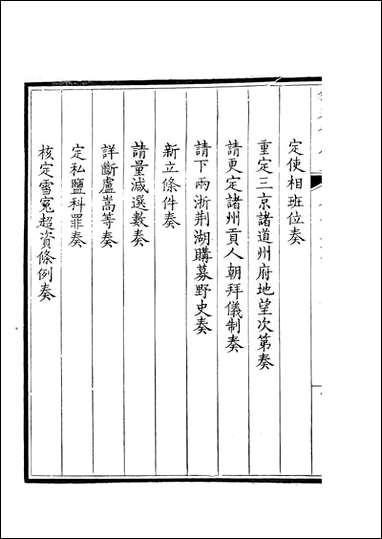 定使相班位奏
重定三京諸道州府地望次第奏
請更定諸州貢人朝拜儀制奏
請下兩浙荆湖購募野史奏
新立條件奏
請量減選數奏
詳斷盧嵩等奏
定私鹽科罪奏
核定雪寃超資條例奏